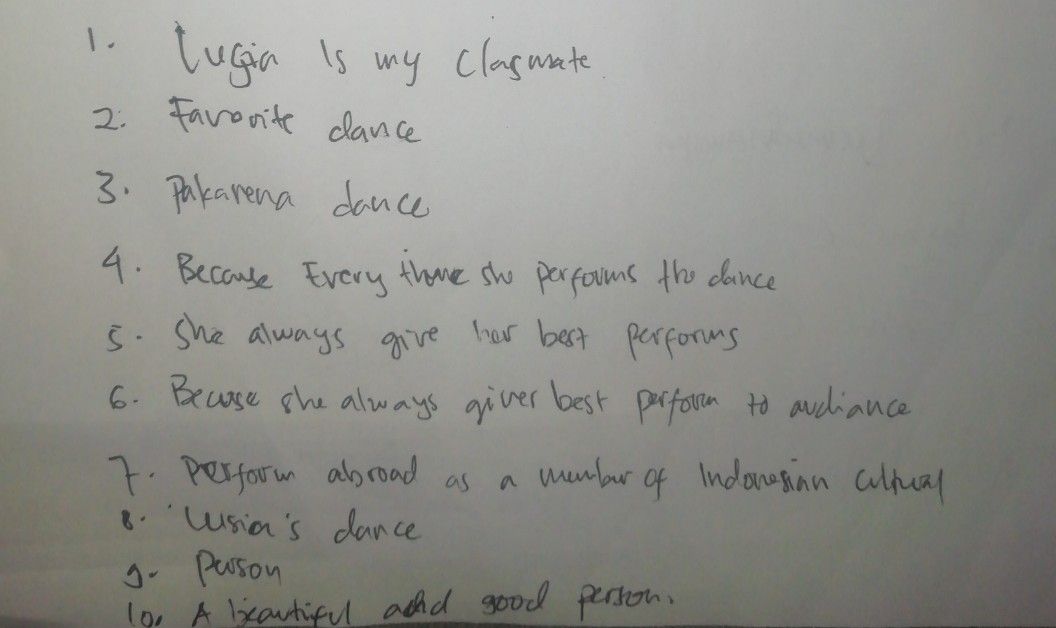 1. Lugia Is my Clasmate.
2. Favorite dance
3. Pakarena dance
4. Because Every thome she performs the dance
5. She always give her best performs
6. Becuse she always giver best perform to audiance
7. Perform abroad as a member of Indonesian Cultural
8. Lusia's dance
9. Person
10. A beautiful and good person.